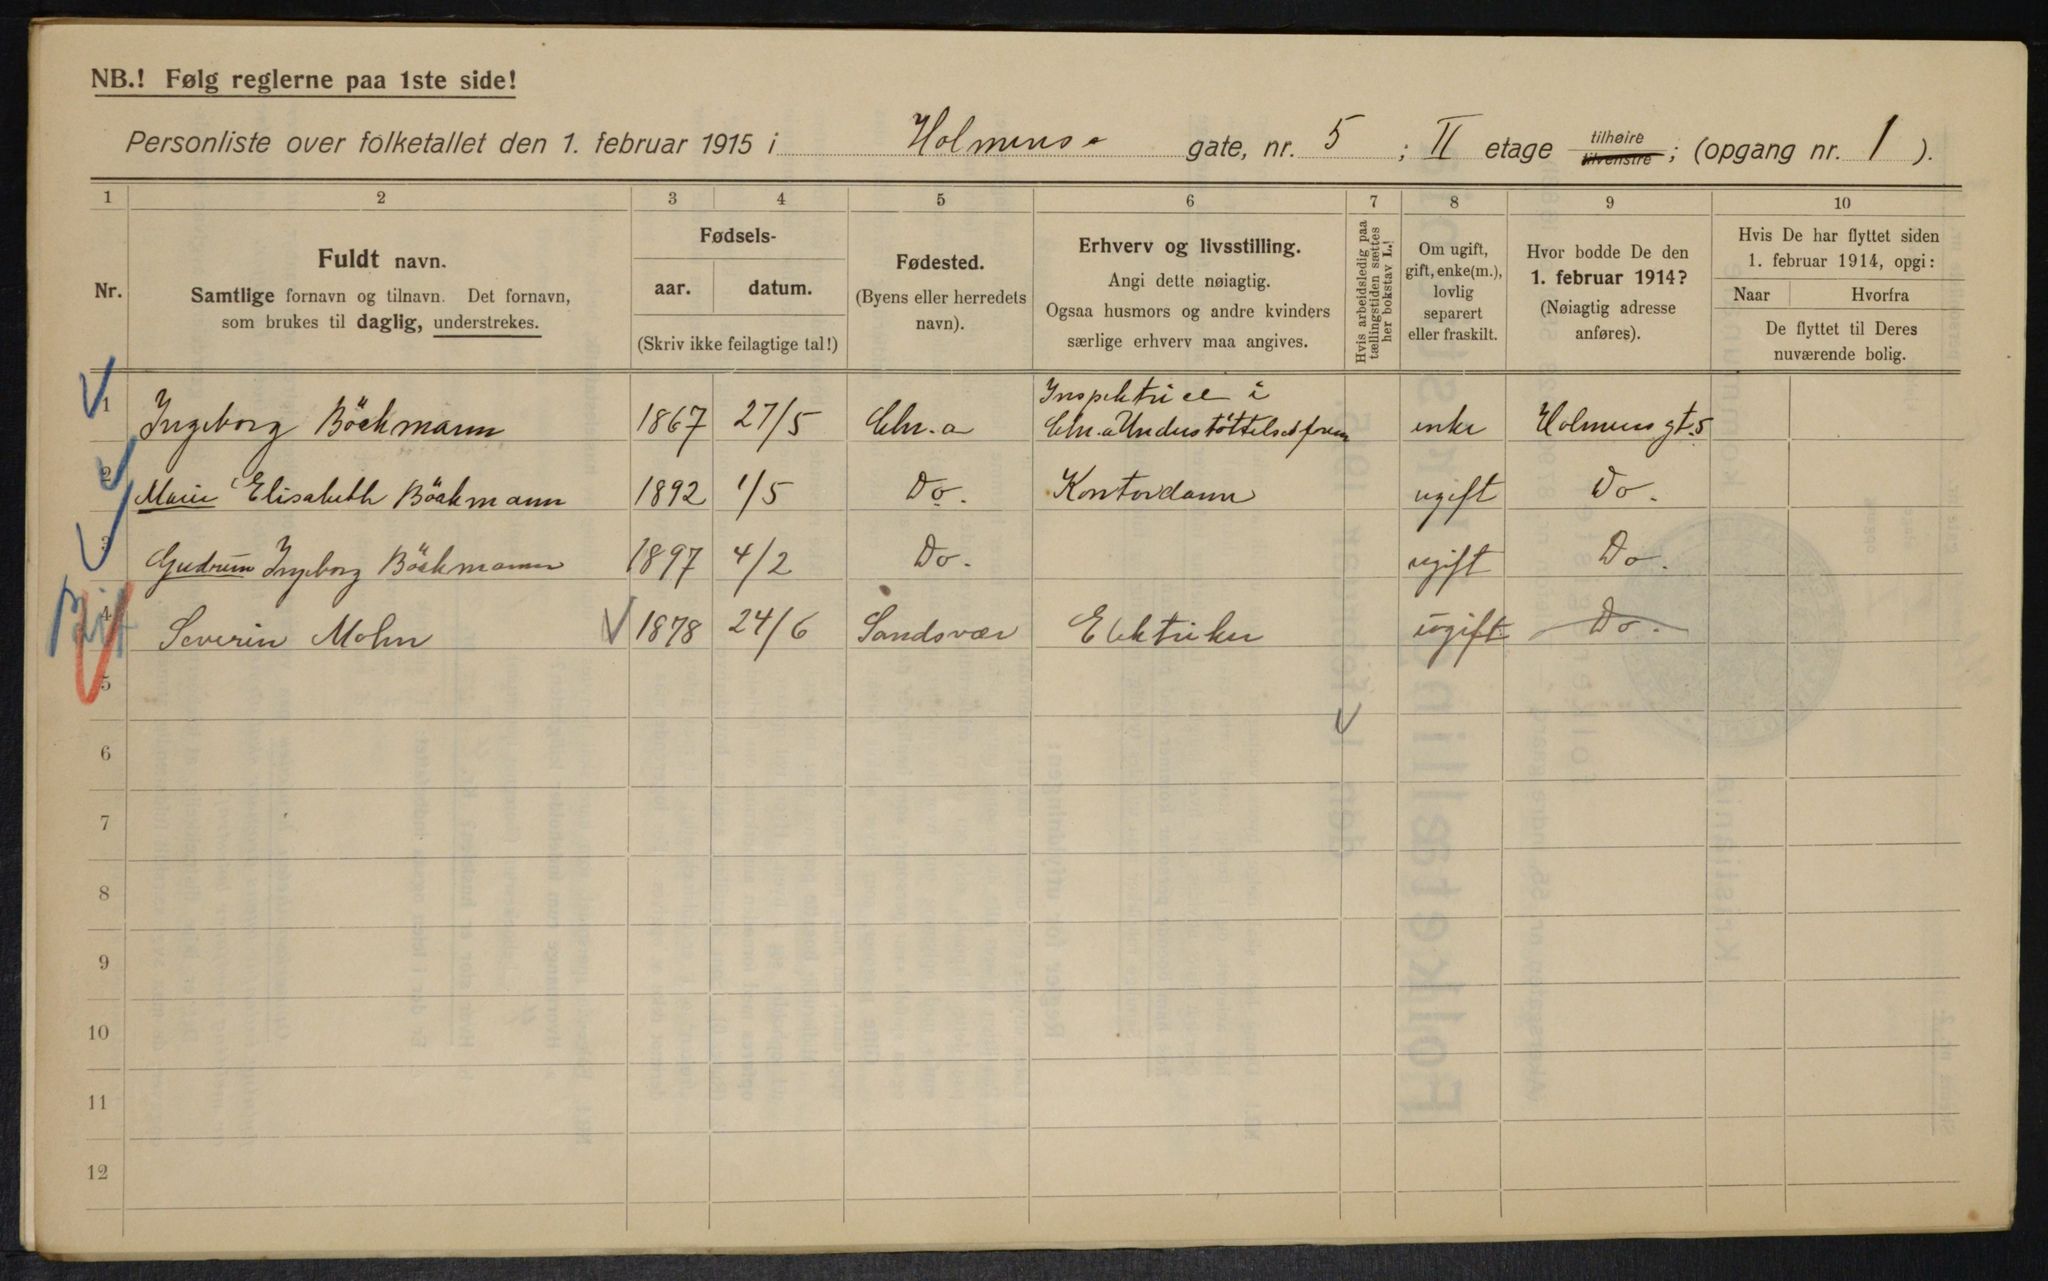 NB.! Følg reglerne paa 1ste side!
Personliste over folketallet den 1. februar 1915 i Holmens gate, nr. 5 ; II etage tilhøire tilvenstre ; (opgang nr. 1 ).
1 2 3 4 5 6 7 8 9 10
Nr.
Fuldt navn.
Samtlige fornavn og tilnavn. Det fornavn,
som brukes til daglig, understrekes.
Fødsels-
aar. datum.
(Skriv ikke feilagtige tal!)
Fødested.
(Byens eller herredets
navn).
Erhverv og livsstilling.
Angi dette nøiagtig.
Ogsaa husmors og andre kvinders
særlige erhverv maa angives.
Hvis arbeidsledig paa
tællingstiden sættes
her bokstav L.!
Om ugift,
gift, enke(m.),
lovlig
separert
eller fraskilt.
Hvor bodde De den
1. februar 1914?
(Nøiagtig adresse
anføres).
Hvis De har flyttet siden
1. februar 1914, opgi:
Naar Hvorfra
De flyttet til Deres
nuværende bolig.
1 Ingeborg Böckmann 1867 27/5 Chr.a Inspektrice i
Chr.a Understøttelsesforen enke Holmens gt. 5
2 Marie Elisabeth Böckmann 1892 1/5 Do. Kontordame ugift Do.
3 Gudrun Ingeborg Böckmann 1897 4/2 Do. ugift Do.
4 Severin Mohn 1878 24/6 Sandsvær Elektriker ugift Do.
5
6
7
8
9
10
11
12